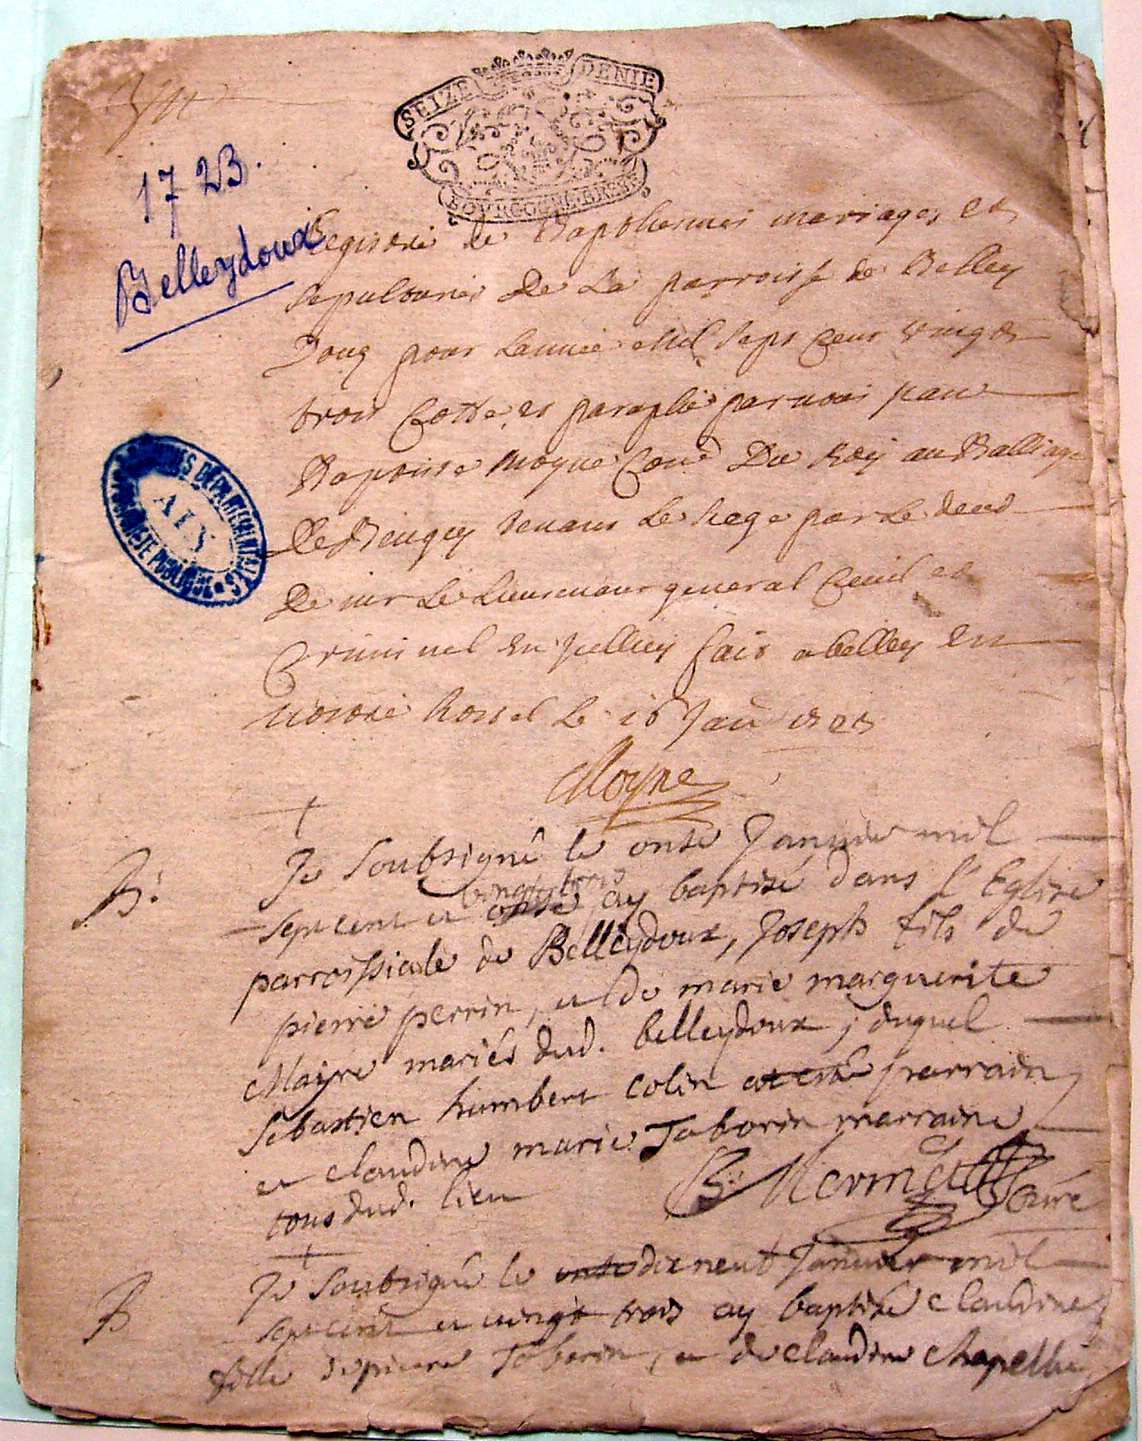 SEIZE DENIE
BOURGOGNE BRESSE
1723.
Belleydoux
Registre de Baptesmes mariages et
sepultures De La parroisse de Belley
Doux pour Lannee Mil sept Cent vingt
trois Cotté et paraphé par nous Jean
Baptiste Moyne Con.er Du Roy au Balliage
De Beugey tenant Le siege par Le deced
De mr Le Lieutenant general Ciuil et
Criminel fait a belley en
nostre hostel Le 16 Jan
Moyne
ARCHIVES DÉPARTEMENTALES
AIN
PROPRIÉTÉ PUBLIQUE
B.
Je soubsigné le onze Januier mil
vingt trois
sept cent et onze ay baptisé dans l'Eglise
parroissiale de Belleydoux, Joseph fils de
pierre perrin, et de marie marguerite
Mayre mariés dud. belleydoux ; duquel
sebastien humbert colin at esté parrain,
et claudine marie Taborin marraine
tous dud. lieu
B. Mermet Curé
B
Je soubsigné le onse dix neuf Januier mil
sept cent et vingt trois ay baptisé claudine
fille de pierre Taborin, et de claudine Chapellu